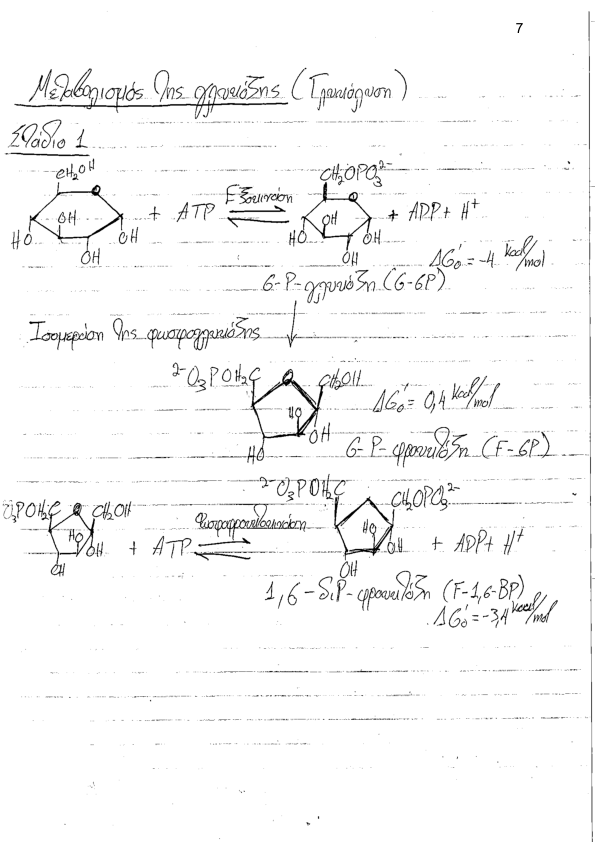 7
Μεταβολισμός της γλυκόζης (Γλυκόλυση)
Στάδιο 1
CH₂OH
O
OH
HO
OH
OH
+ ATP
Εξοκινάση
CH₂OPO₃²⁻
OH
HO
OH
OH
+ ADP + H⁺
ΔG₀' = -4 kcal/mol
6-P-γλυκόζη (G-6P)
Ισομεράση της φωσφογλυκόζης
²⁻O₃POH₂C
O
CH₂OH
HO
OH
HO
ΔG₀' = 0,4 kcal/mol
6-P-φρουκτόζη (F-6P)
O₃POH₂C
O
CH₂OH
HO
OH
OH
+ ATP
Φωσφοφρουκτοκινάση
²⁻O₃POH₂C
CH₂OPO₃²⁻
HO
OH
OH
+ ADP + H⁺
1,6-διP-φρουκτόζη (F-1,6-BP)
ΔG₀' = -3,4 kcal/mol